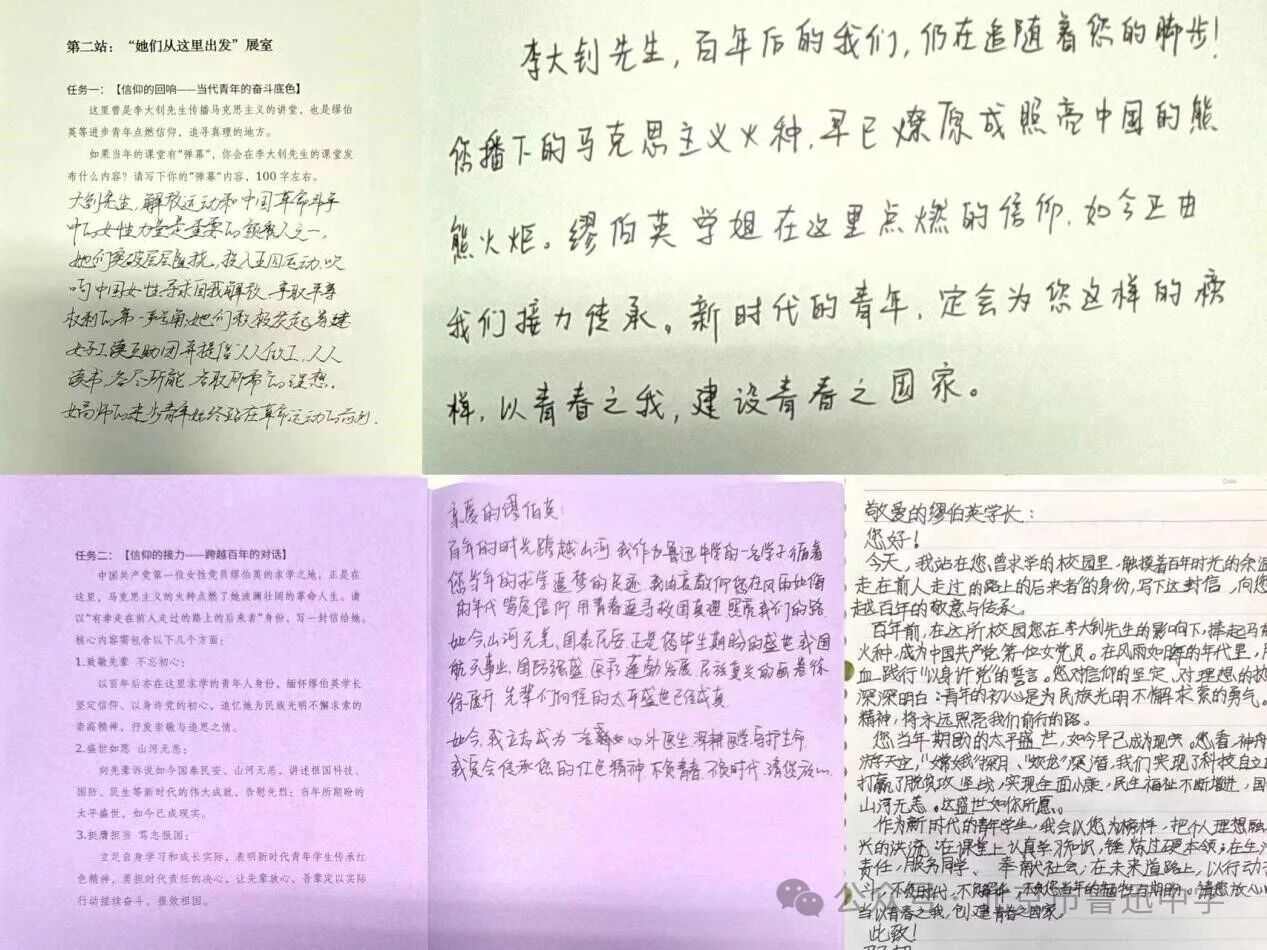 第二站：“她们从这里出发”展室
任务一：【信仰的回响——当代青年的奋斗底色】
这里曾是李大钊先生传播马克思主义的讲堂，也是缪伯
英等进步青年点燃信仰，追寻真理的地方。
如果当年的课堂有“弹幕”，你会在李大钊先生的课堂发
布什么内容？请写下你的“弹幕”内容，100字左右。
大钊先生，解放运动和中国革命斗争
中的女性力量是重要的领袖人之一，
她们突破层层阻挠，投入五四运动，吹
响中国女性寻求自我解放、争取平等
权利的第一声号角，她们积极发起筹建
女子工读互助团并提倡人人做工，人人
读书，各尽所能，各取所需的理想。
女高师的进步青年始终站在革命运动的前列。
李大钊先生，百年后的我们，仍在追随着您的脚步！
您播下的马克思主义火种，早已燎原成照亮中国的熊
熊火炬。缪伯英学姐在这里点燃的信仰，如今正由
我们接力传承。新时代的青年，定会为您这样的榜
样，以青春之我，建设青春之国家。
任务二：【信仰的接力——跨越百年的对话】
中国共产党第一位女性党员缪伯英的求学之地，正是在
这里，马克思主义的火种点燃了她波澜壮阔的革命人生。请
以“有幸走在前人走过的路上的后来者”身份，写一封信给她。
核心内容需包含以下几个方面：
1.致敬先辈 不忘初心：
以百年后亦在这里求学的青年人身份，缅怀缪伯英学长
坚定信仰、以身许党的初心，追忆她为民族光明不懈求索的
崇高精神，抒发崇敬与追思之情。
2.盛世如愿 山河无恙：
向先辈诉说如今国泰民安、山河无恙，讲述祖国科技、
国防、民生等新时代的伟大成就，告慰先烈：当年所期盼的
太平盛世，如今已成现实。
3.挺膺担当 笃志报国：
立足自身学习和成长实际，表明新时代青年学生传承红
色精神，勇担时代责任的决心，让先辈放心，吾辈定以实际
行动接续奋斗、报效祖国。
亲爱的缪伯英：
百年的时光跨越山河 我作为鲁迅中学的一名学子 循着
您当年的求学逐梦的足迹 我由衷敬仰您在风雨如晦
的年代 坚定信仰 用青春追寻救国真理 照亮我们的路
如今山河无恙、国泰民安 正是您毕生期盼的盛世 我国
航天事业、国防强盛 医疗蓬勃发展 民族复兴的画卷徐
徐展开 先辈们向往的太平盛世已经成真
如今，我立志成为一名 心外医生 深耕医学 守护生命
我定会传承您的红色精神 不负青春 不负时代 请您放心
敬爱的缪伯英学长：
您好！
今天，我站在您曾求学的校园里，触摸着百年时光的余温
走在前人走过的路上的后来者的身份，写下这封信，向您
越百年的敬意与传承。
百年前，在这所校园您在李大钊先生的影响下，捧起马克
火种，成为中国共产党第一位女党员。在风雨如晦的年代里，用
血，践行“以身许党”的誓言。您对信仰的坚定、对理想的执
深深明白：青年的初心是为民族光明不懈求索的勇气。
精神，将永远照亮我们前行的路。
您当年期盼的太平盛世，如今早已成为现实。您看，神舟
游天空，“嫦娥”探月、“蛟龙”深潜，我们实现了科技自立
打赢了脱贫攻坚战，实现全面小康，民生福祉不断增进，国
山河无恙。这盛世如你所愿。
作为新时代的青年学生，我会以您为榜样，把个人理想融
兴的洪流。在课堂上认真学习知识，锤炼过硬本领；在生活
责任，服务同学、奉献社会；在未来道路上，以行动
斗，不负时代，不负韶华，不负您当年的牺牲与期盼。请您放心
当以青春之我，创建青春之国家。
此致！
公众号·北京市鲁迅中学